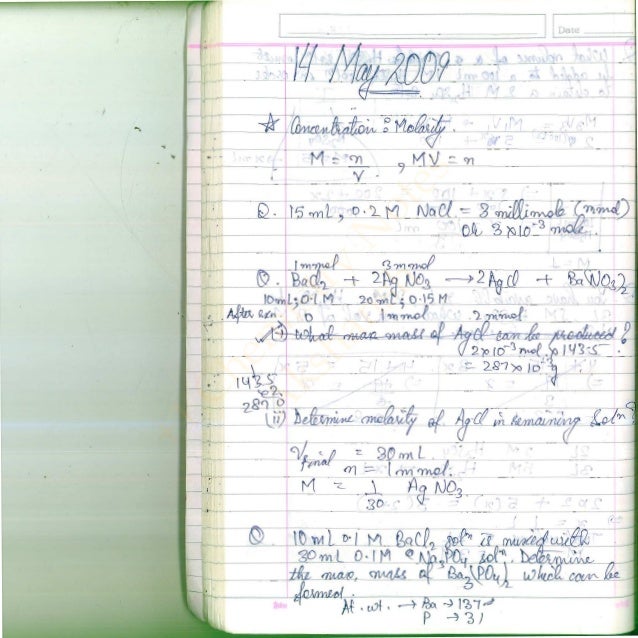 Date
14 May 2009
☆ Concentration : Molarity.
M = n/V , MV = n
Q. 15 mL, 0.2 M NaCl = 3 millimole (mmol)
Or 3×10⁻³ mole.
1 mmol 3 mmol
Q. BaCl₂ + 2AgNO₃ → 2AgCl + Ba(NO₃)₂
10mL; 0.1M 20mL; 0.15M
After rxn. 0 1 mmol 2 mmol
(i) What max mass of AgCl can be produced?
2×10⁻³ mol × 143.5
= 287×10⁻³ g
143.5
287.0
(ii) Determine molarity of AgCl in remaining Soln?
V final = 30 mL.
n = 1 mmol.
M = 1/30 AgNO₃.
Q. 10 mL 0.1 M BaCl₂ solⁿ is mixed with
30 mL 0.1M Na₃PO₄ solⁿ. Determine
the max. mass of Ba₃(PO₄)₂ which can be
formed.
At. wt. → Ba → 137
P → 31